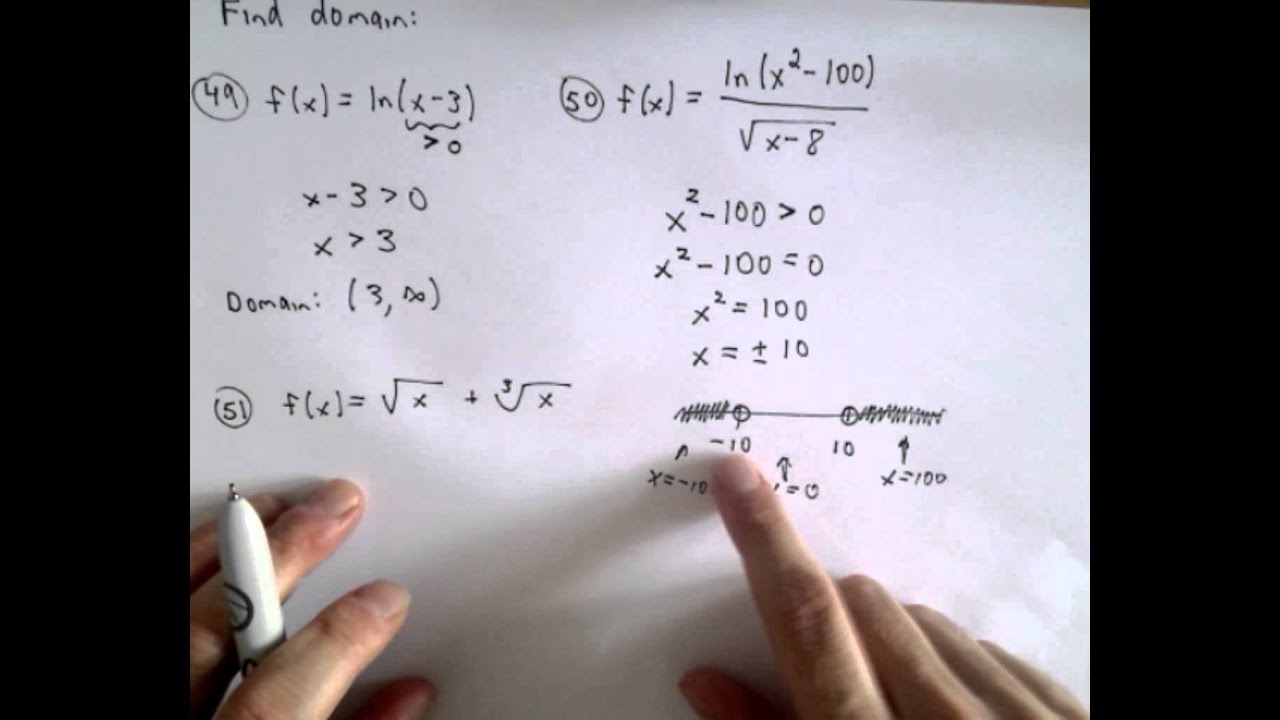 Find domain:
49 f(x) = ln(x-3)
> 0
x - 3 > 0
x > 3
Domain: (3, ∞)
50 f(x) = ln(x² - 100) / √(x-8)
x² - 100 > 0
x² - 100 = 0
x² = 100
x = ± 10
-10 10
x=-10 =0 x=100
51 f(x) = √x + ∛x